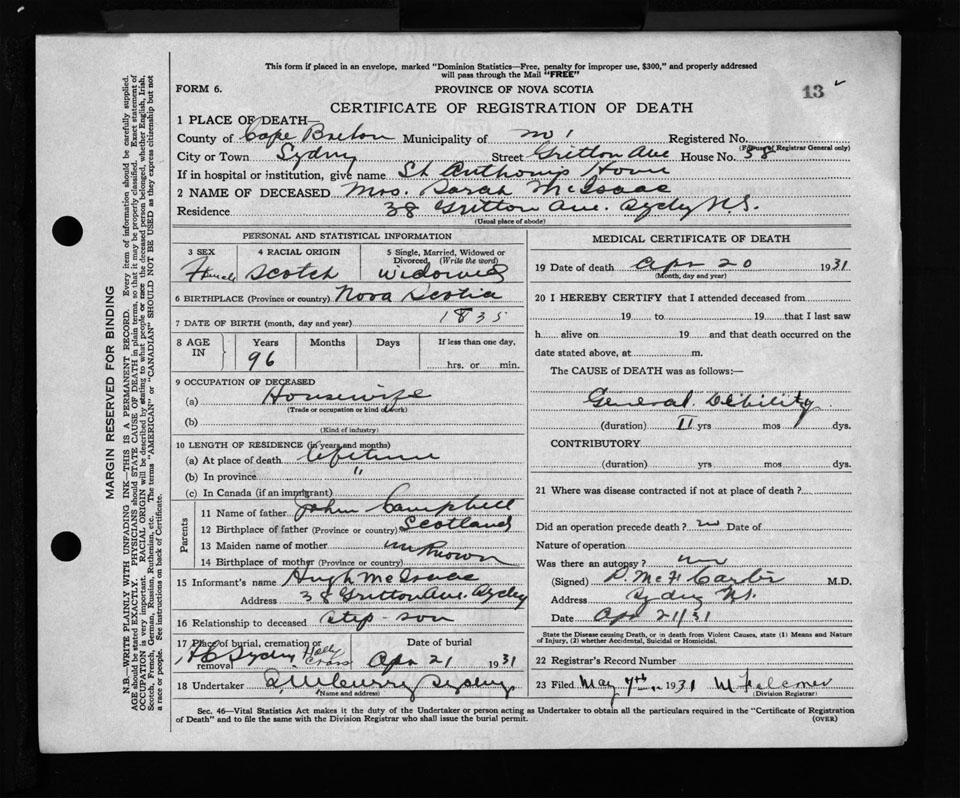 This form if placed in an envelope, marked "Dominion Statistics—Free, penalty for improper use, $300," and properly addressed
will pass through the Mail "FREE"
FORM 6. PROVINCE OF NOVA SCOTIA 13
CERTIFICATE OF REGISTRATION OF DEATH
1 PLACE OF DEATH—
County of Cape Breton Municipality of Registered No.
(For use of Registrar General only)
City or Town Sydney Street Gritton Ave House No. 38
If in hospital or institution, give name St Anthonys Home
2 NAME OF DECEASED Mrs. Sarah McIsaac
Residence 38 Gritton Ave. Sydney N.S.
(Usual place of abode)
PERSONAL AND STATISTICAL INFORMATION
3 SEX 4 RACIAL ORIGIN 5 Single, Married, Widowed or Divorced, (Write the word)
Female Scotch Widowed
6 BIRTHPLACE (Province or country) Nova Scotia
7 DATE OF BIRTH (month, day and year) 1835
8 AGE IN Years Months Days If less than one day,
96 hrs. or min.
9 OCCUPATION OF DECEASED
(a) Housewife
(Trade or occupation or kind of work)
(b)
(Kind of industry)
10 LENGTH OF RESIDENCE (in years and months)
(a) At place of death Lifetime
(b) In province "
(c) In Canada (if an immigrant)
Parents
11 Name of father John Campbell
12 Birthplace of father (Province or country) Scotland
13 Maiden name of mother unknown
14 Birthplace of mother (Province or country)
15 Informant's name Hugh McIsaac
Address 38 Gritton Ave. Sydney
16 Relationship to deceased step-son
17 Place of burial, cremation or removal Date of burial
Sydney Holy Cross Apr 21 1931
18 Undertaker Sydney
(Name and address)
MEDICAL CERTIFICATE OF DEATH
19 Date of death Apr 20 1931
(Month, day and year)
20 I HEREBY CERTIFY that I attended deceased from
19 to 19 that I last saw
h alive on 19 and that death occurred on the
date stated above, at m.
The CAUSE of DEATH was as follows:—
General Debility
(duration) II yrs mos dys.
CONTRIBUTORY
(duration) yrs mos dys.
21 Where was disease contracted if not at place of death?
Did an operation precede death? no Date of
Nature of operation
Was there an autopsy? no
(Signed) M.D.
Address Sydney N.S.
Date Apr 21/31
State the Disease causing Death, or in death from Violent Causes, state (1) Means and Nature
of Injury, (2) whether Accidental, Suicidal or Homicidal.
22 Registrar's Record Number
23 Filed May 7th 1931
(Division Registrar)
Sec. 46—Vital Statistics Act makes it the duty of the Undertaker or person acting as Undertaker to obtain all the particulars required in the "Certificate of Registration
of Death" and to file the same with the Division Registrar who shall issue the burial permit. (OVER)
MARGIN RESERVED FOR BINDING
N.B.—WRITE PLAINLY WITH UNFADING INK—THIS IS A PERMANENT RECORD. Every item of information should be carefully supplied.
AGE should be stated EXACTLY. PHYSICIANS should STATE CAUSE OF DEATH in plain terms, so that it may be properly classified. Exact statement of
OCCUPATION is very important. RACIAL ORIGIN will be described by stating to what people or race the deceased person belonged, whether English, Irish,
Scotch, French, German, Russian, Ruthenian, etc. The terms "AMERICAN" or "CANADIAN" SHOULD NOT BE USED as they express citizenship but not
a race or people. See instructions on back of Certificate.